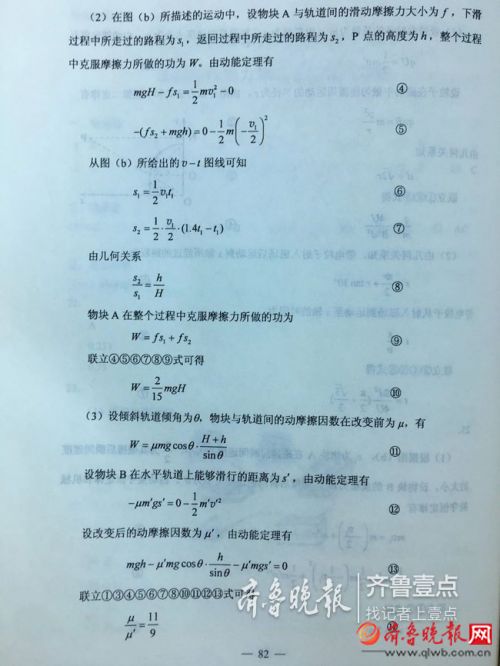 （2）在图（b）所描述的运动中，设物块 A 与轨道间的滑动摩擦力大小为 f，下滑
过程中所走过的路程为s₁，返回过程中所走过的路程为s₂，P 点的高度为h，整个过程
中克服摩擦力所做的功为 W。由动能定理有
mgH − fs₁ = 1/2 mv₁² − 0 ④
−(fs₂ + mgh) = 0 − 1/2 m(−v₁/2)² ⑤
从图（b）所给出的v−t图线可知
s₁ = 1/2 v₁t₁ ⑥
s₂ = 1/2 · v₁/2 · (1.4t₁ − t₁) ⑦
由几何关系
s₂/s₁ = h/H ⑧
物块 A 在整个过程中克服摩擦力所做的功为
W = fs₁ + fs₂ ⑨
联立④⑤⑥⑦⑧⑨式可得
W = 2/15 mgH ⑩
（3）设倾斜轨道倾角为θ，物块与轨道间的动摩擦因数在改变前为 μ，有
W = μmg cosθ · (H + h)/sinθ ⑪
设物块 B 在水平轨道上能够滑行的距离为s′，由动能定理有
−μm′gs′ = 0 − 1/2 m′v′² ⑫
设改变后的动摩擦因数为μ′，由动能定理有
mgh − μ′mg cosθ · h/sinθ − μ′mgs′ = 0 ⑬
联立①③④⑤⑥⑦⑧⑩⑪⑫⑬式可得
μ/μ′ = 11/9
— 82 —
齐鲁晚报 齐鲁壹点
找记者上壹点
齐鲁晚报网
www.qlwb.com.cn